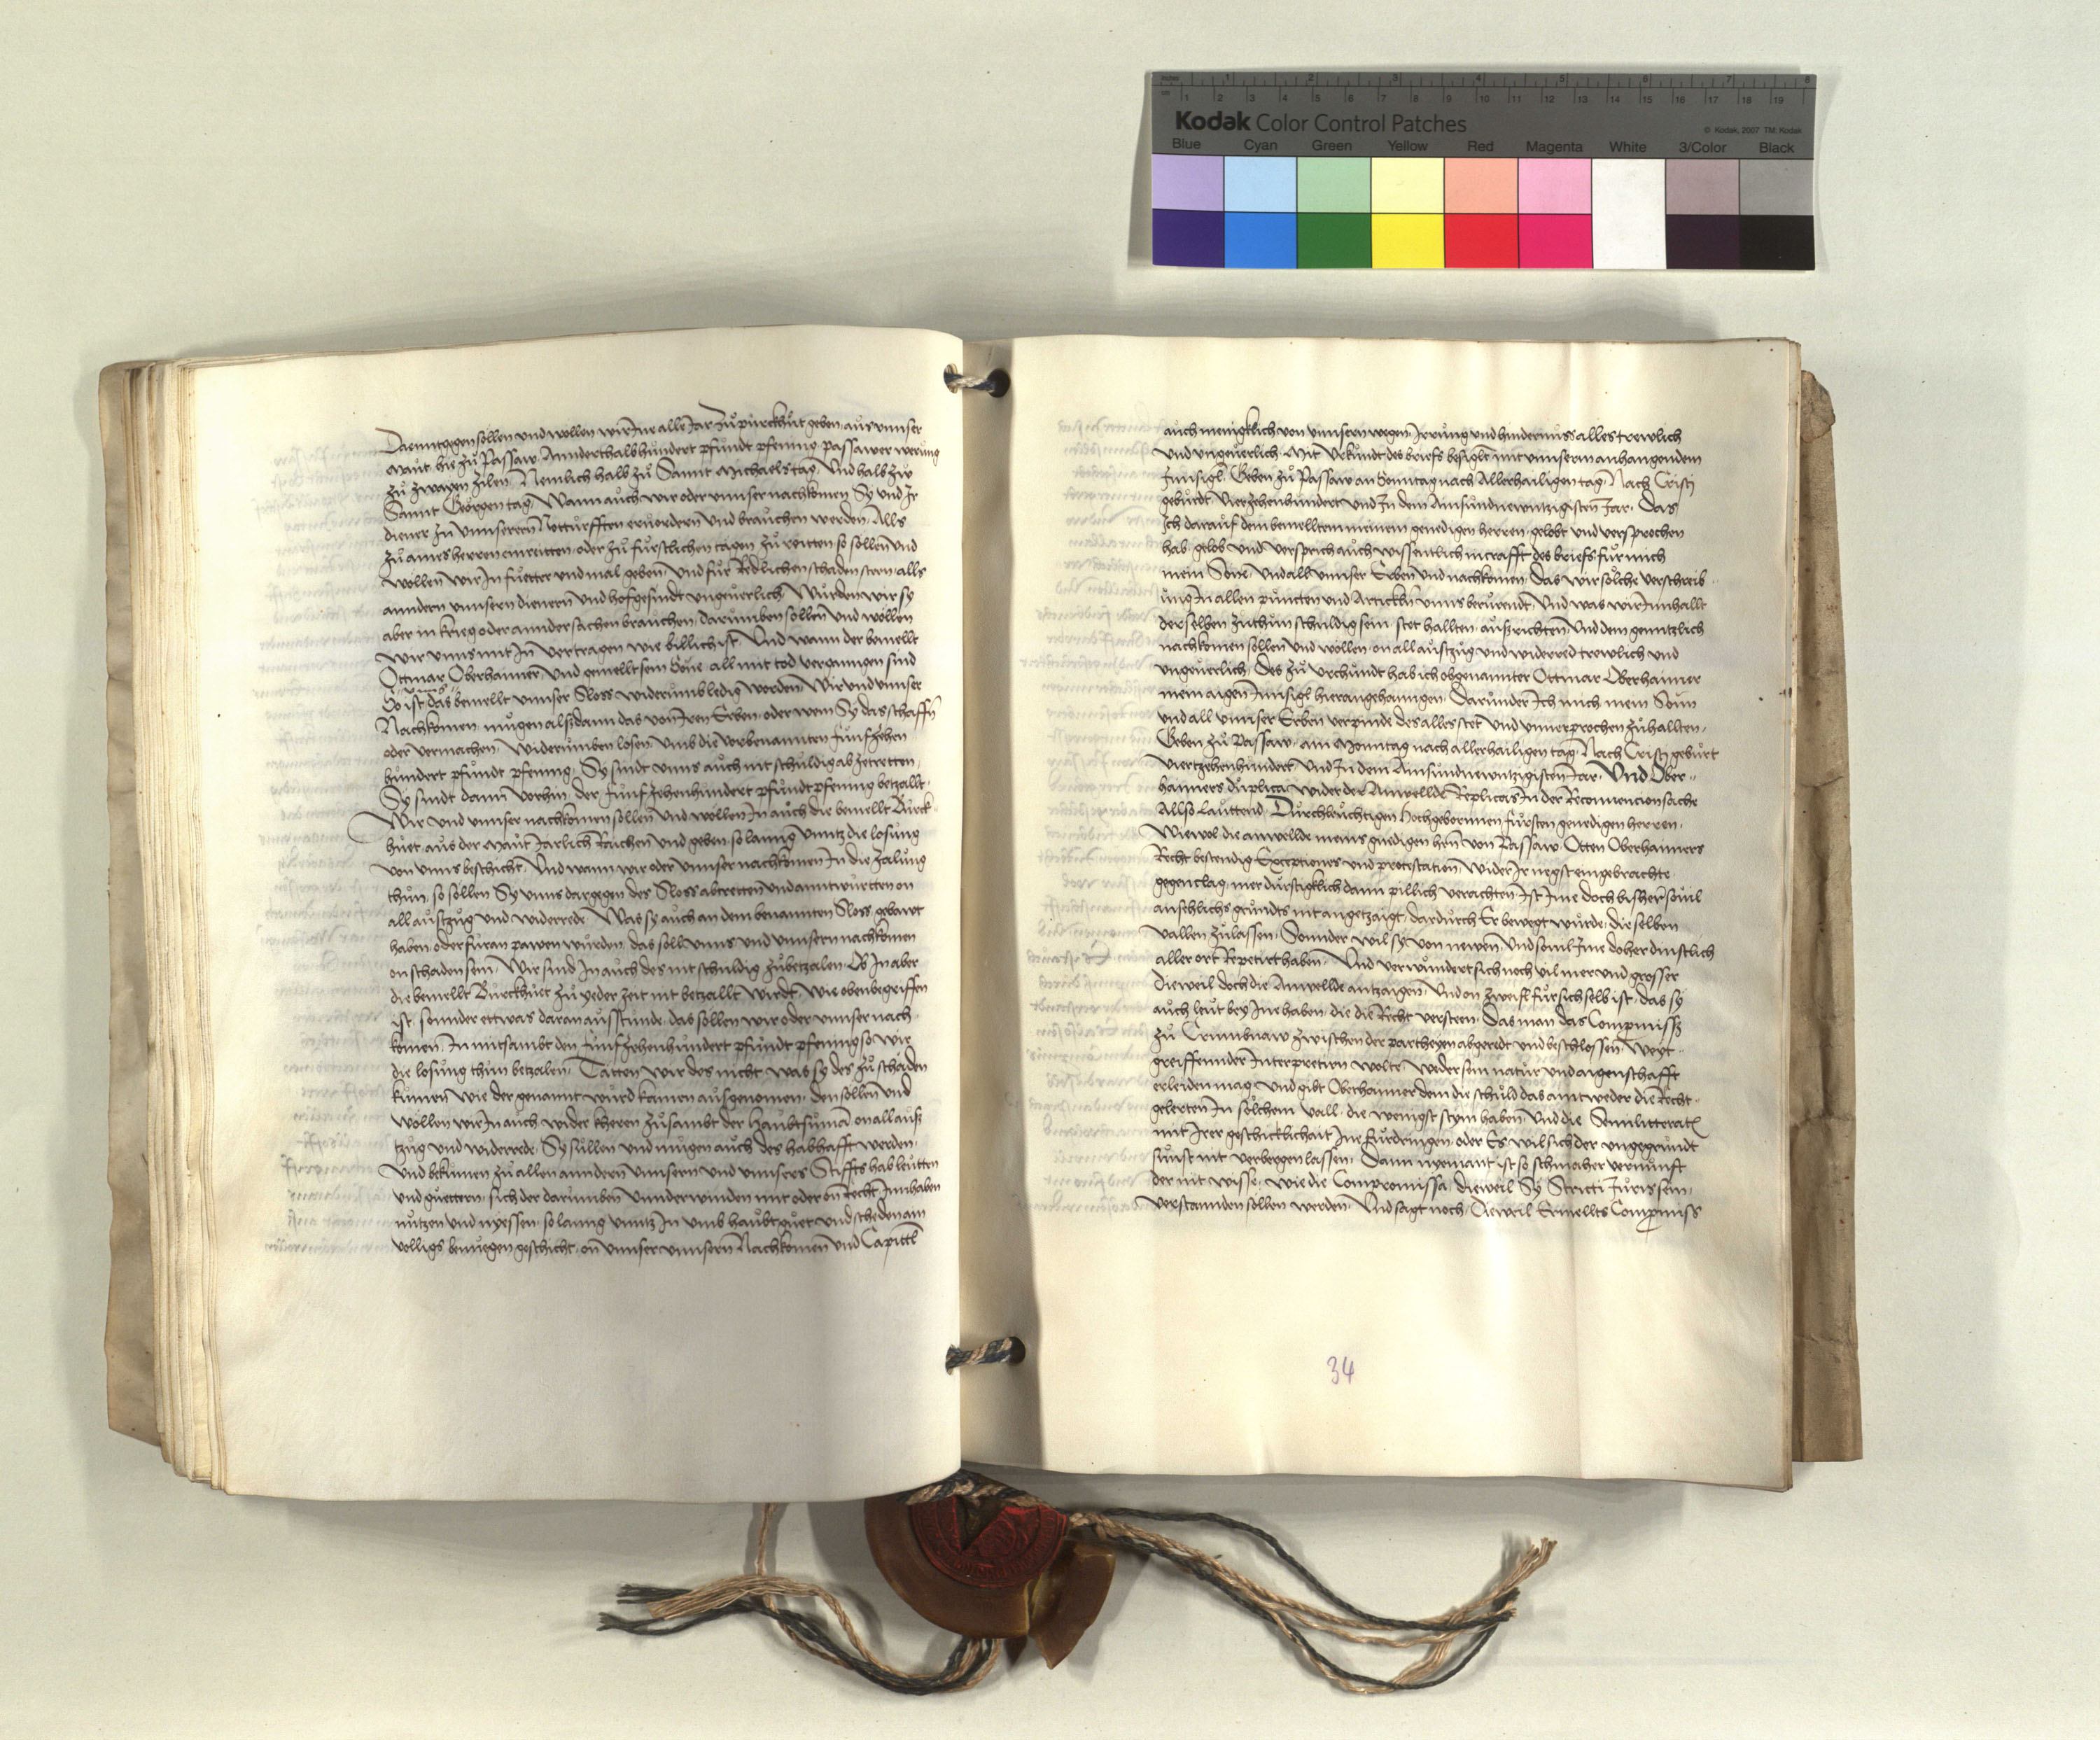 Kodak Color Control Patches
© Kodak, 2007 TM: Kodak
Blue Cyan Green Yellow Red Magenta White 3/Color Black
Daenntgegen sollen und wollen wir Ine alle Jar zu purckhut geben, aus unnser
Maut hie zu Passaw Annderthalbhundert pfundt pfening passawer werung
zu zwayen zilen Nemlich halb zu Sannt Michaels tag Und halb zw
Sannt Georgen tag Wann auch wir oder unnser nachkomen Sy und Ir
diener zu unnseren Notturfften ervordern und brauchen werden Alls
zu aines herren einreitten oder zu furstlichen tagen zu reitten so sollen und
wollen wir In fuetter und mal geben und fur Redlichen schaden steen alls
anndern unnsern dienern und hofgesindt ungeuerlich Wurden wir sy
aber in krieg oder annder sachen brauchen darumben sollen und wollen
wir unns mit In vertragen wie billich ist Und wann der bemellt
Ottmar Oberhaimer und gemellt sein Söne all mit tod vergangen sind
So ist unns das bemellt unnser Sloss widerumb ledig worden Wir und unnser
Nachkomen mugen alsdann das von Iren Erben oder wem Sy das schaffen
oder vermachen widerumben losen umb die vorbenannten funfzehen
hundert pfundt pfening Sy sindt unns auch nit schuldig abzetretten
Sy sindt dann vorhin der funfzehenhundert pfundt pfening betzallt
Wir und unnser nachkomen sollen und wollen In auch die bemellt Burck
huet aus der Maut Jarlich Raichen und geben so lanng unntz die losung
von unns beschicht Und wann wir oder unnser nachkomen In die zalung
thun so sollen Sy unns dargegen des Sloss abtretten und anntwurtten on
all austzug und widerrede Was sy auch an dem benannten Sloss gebawt
haben oder furan pawen wurden das soll unns und unnsern nachkomen
on schaden sein Wir sind In auch des nit schuldig zubetzalen Ob In aber
die bemellt Burckhuet zu yeder zeit nit betzallt wirdt wie oben begriffen
ist sonnder ettwas daran ausstunde das sollen wir oder unnser nach
komen In mitsambt den funfzehenhundert pfundt pfening so wir
die losung thun betzalen Tatten wir des nicht was sy des zu schaden
kumen wie der genannt wurd kainen ausgenomen den sollen und
wollen wir In auch wider kheren zusambt der haubtsuma on all aus
tzug und widerrede Sy sullen und mugen auch des habhafft werden
und bekumen zu allen anndern unnsern und unnsers Stiffts hab leutten
und guettern sich der darumben unnderwinden mit oder on Recht Innhaben
nutzen und nyessen so lanng unntz In umb haubtguet und scheden am
volligs benuegen geschicht on unnser unnsern Nachkomen und Capittl
auch menigklich von unnsern wegen Irrung und hindernuss alles trewlich
und ungeuerlich Mit Urkundt des briefs besiglt mit unnserm anhangendem
Innsigl Geben zu Passaw an Sonntag nach Allerhailigen tag Nach Cristi
geburdt vierzehenhundert und In dem Ainsundnewntzigisten Jar Das
Ich darauf dem bemellten meinem genedigen herren gelobt und versprochen
hab gelob und versprich auch wissentlich in crafft des briefs fur mich
mein Sone und all unnser Erben und nachkomen Das wir solche verschreib
ung In allen puncten und Artickeln unns berurendt Und was wir Innhallt
derselben zuthun schuldig sein stet hallten ausrichten Und dem genntzlich
nachkomen sollen und wollen on all austzug und widerred trewlich und
ungeuerlich Des zu urchundt hab ich obgenannter Ottmar Oberhaimer
mein aigen Innsigl hieran gehanngen Darunder Ich mich mein Sonn
und all unnser Erben verpinde des alles stet und unnzerprochen zuhallten
Geben zu Passaw am Monntag nach allerhailigen tag Nach Cristi geburt
Viertzehenhundert Und In dem Ainsundnewntzigisten Jar Und Ober
haimers duplica wider der Anwellde Replicas In der Reconvencion sache
Allso Lauttend Durchleuchtigen Hochgebornnen fursten genedigen herren
Wiewol die anwellde meins gnedigen hern von Passaw Otten Oberhaimers
Recht bestendig Exceptiones und protestation wider Ir negst eingebrachte
gegenclag mer durstigklich dann pillich verachten Ist Ine doch bisher souil
ansehlichs grundts nit angetzaigt dardurch Er bewegt wurde dieselben
vallen zulassen Sonnder wil sy von newen Und souil Ine doher dinstlich
aller ort Repetirt haben Und verwundert sich noch vil mer und grosser
Dieweil doch die Anwellde antzaigen Und on zweifl fur sich selb ist das sy
auch leut bey Ine haben die die Recht versteen Das man das Compromiss
zu Crumbnaw zwischen der partheyen abgeredt und beschlossen weyt
greiffennder Interpretirn wolte weder sein natur und aigenschafft
erleiden mag und gibt Oberhaimer dem die schuld das antweder die Recht
gelerten In solchem vall die wenigst stym haben Und die Semilitterati
mit Irer geschicklichait Ine furdringen oder Es wil sich der ungegrundt
sunst nit verbergen lassen Dann nyemant ist so schwacher vernunft
der nit wisse wie die Compromissa dieweil Sy Stricti Juris sein
verstannden sollen werden Und sagt noch Dieweil Ermellts Compromiss
34